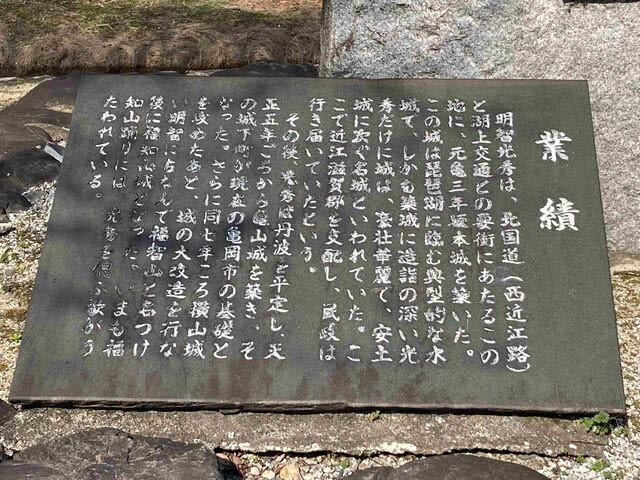 業績
明智光秀は、北国道（西近江路）
と湖上交通との要衝にあたるこの
地に、元亀三年坂本城を築いた。
この城は琵琶湖に臨む典型的な水
城で、しかも築城に造詣の深い光
秀だけに城は、豪壮華麗で、安土
城に次ぐ名城といわれていた。こ
こで近江滋賀郡を支配し、威政は
行き届いていたという。
その後、光秀は丹波を平定し、天
正五年ごろから亀山城を築き、そ
の城下町が現在の亀岡市の基礎と
なった。さらに同七年ころ横山城
を攻めたあと、城の大改造を行な
い明智にちなんで福智山と名つけ
後に福知山城となった。いまも福
知山踊りには、光秀を偲ぶ歌がう
たわれている。